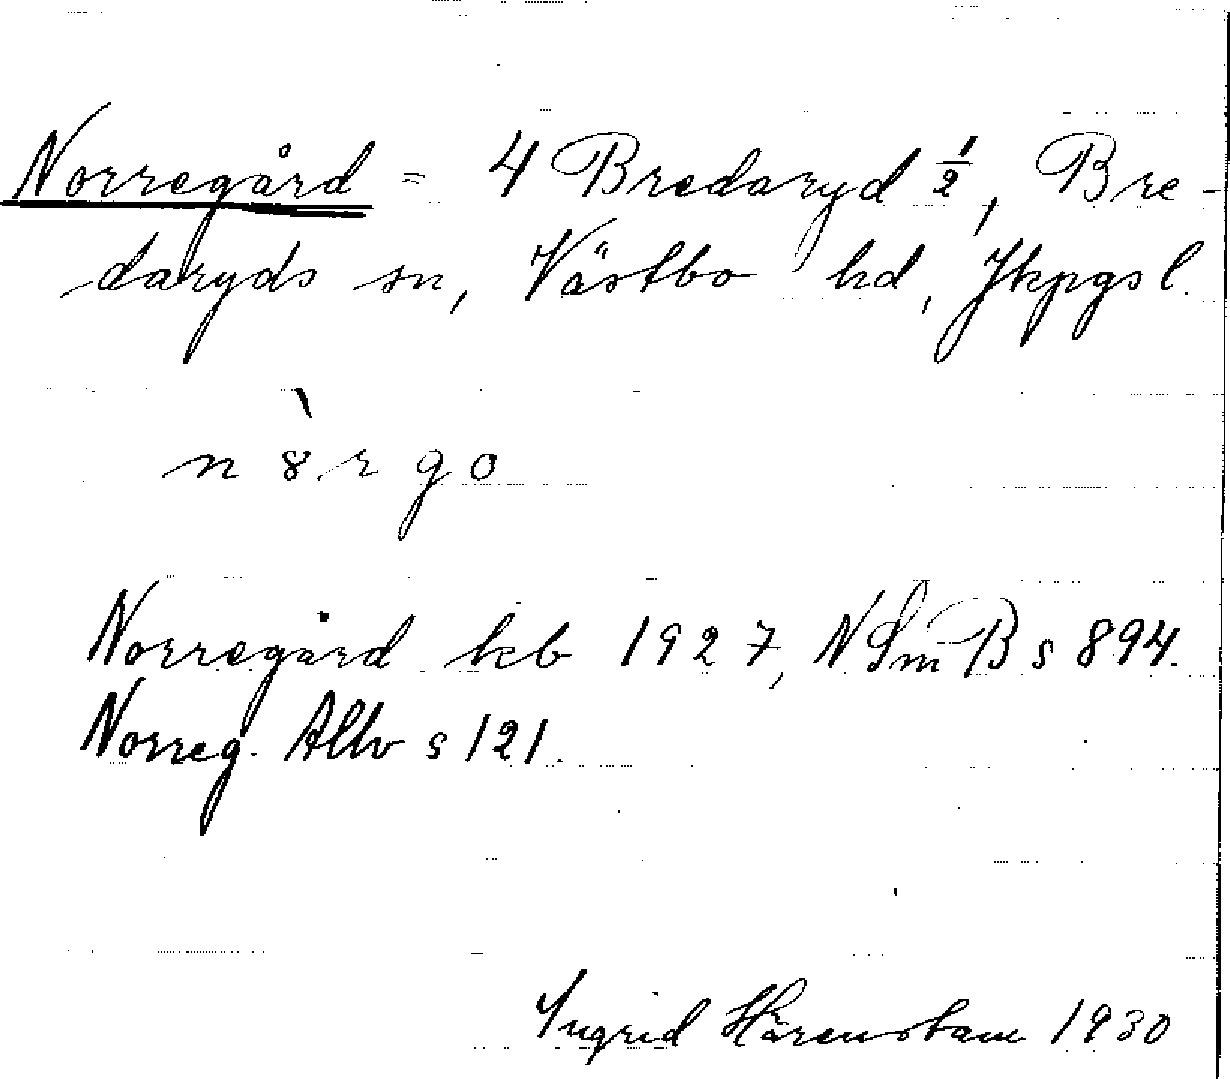 Norregård = 4 Bredaryd ½, Bre-
daryds sn, Västbo hd, Jkpgs l.
n 8̀ r g o
Norregård kb 1927, N Sm B s 894.
Norreg. Allv s 121.
Ingrid Härenstam 1930